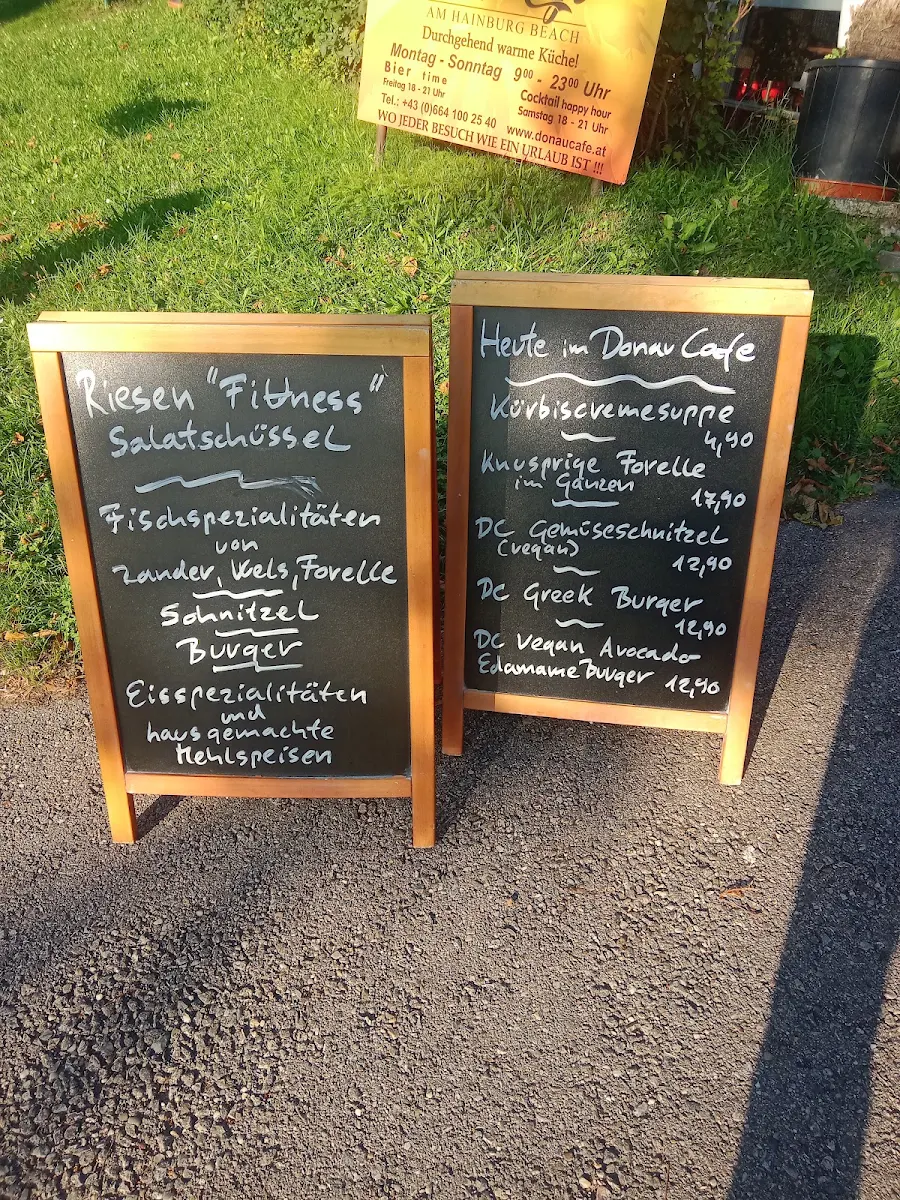 AM HAINBURG BEACH
Durchgehend warme Küche!
Montag - Sonntag 9⁰⁰ - 23⁰⁰ Uhr
Bier time
Freitag 18 - 21 Uhr
Cocktail happy hour
Samstag 18 - 21 Uhr
Tel.: +43 (0)664 100 25 40 www.donaucafe.at
WO JEDER BESUCH WIE EIN URLAUB IST !!!
Riesen "Fittness"
Salatschüssel
Fischspezialitäten
von
Zander, Wels, Forelle
Schnitzel
Burger
Eisspezialitäten
und
hausgemachte
Mehlspeisen
Heute im Donau Cafe
Kürbiscremesuppe
4,90
Knusprige Forelle
im Ganzen
17,90
DC Gemüseschnitzel
(vegan)
12,90
DC Greek Burger
12,90
DC vegan Avocado
Edamame Burger 12,90